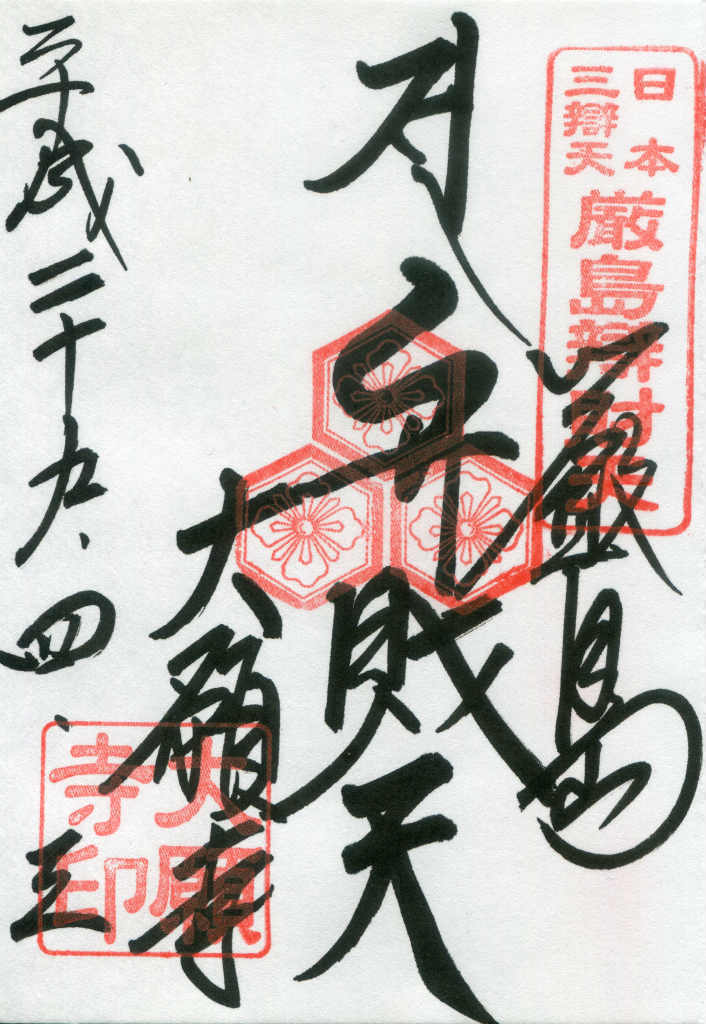 日本
三辯天
厳島辯財天
厳島
弁財天
大願寺
大願
寺印
平成二十九、四、三